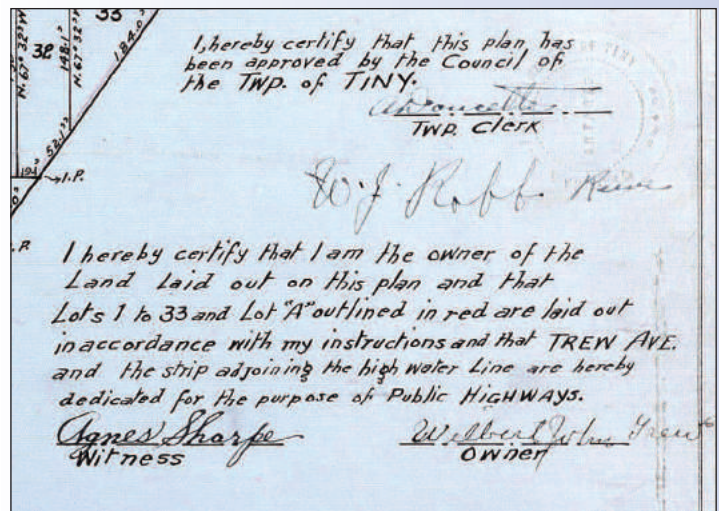 33
32
N. 67° 32' W
148.1'
N. 67° 32'
184.0'
52.1'
I.P.
I, hereby certify that this plan has
been approved by the Council of
the TWP. of TINY.
ADoucette
TWP. Clerk
W. J. Robb Reeve
I hereby certify that I am the owner of the
Land Laid out on this plan and that
Lots 1 to 33 and Lot "A" outlined in red are laid out
in accordance with my instructions and that TREW AVE.
and the strip adjoining the high water Line are hereby
dedicated for the purpose of Public HIGHWAYS.
Agnes Sharpe
Witness
Wilbert John Trew
Owner